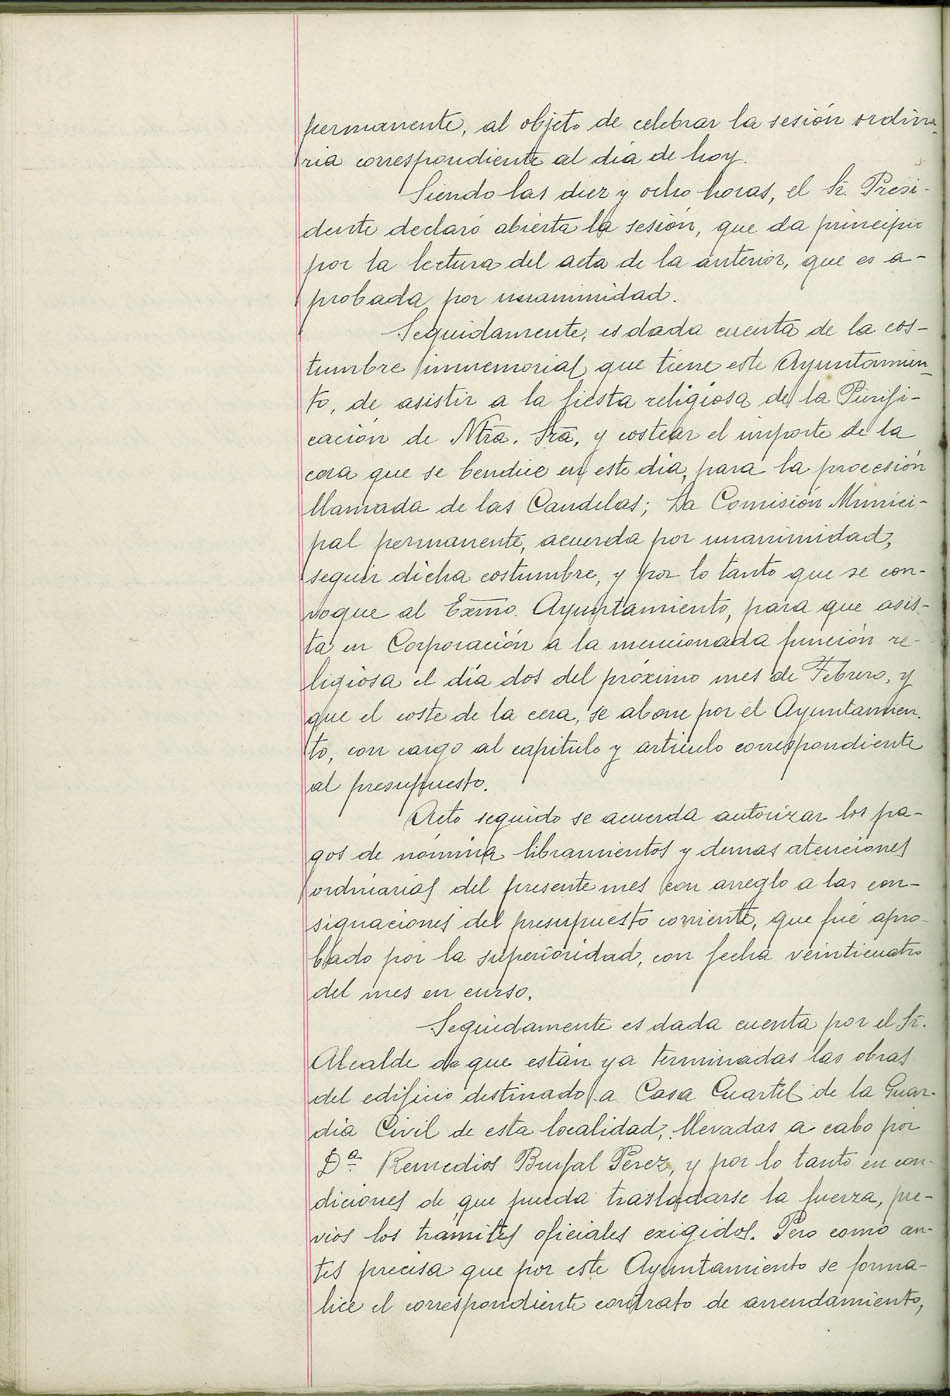 permanente, al objeto de celebrar la sesión ordina-
ria correspondiente al día de hoy.
Siendo las diez y ocho horas, el Sr. Presi-
dente declaró abierta la sesión, que da principio
por la lectura del acta de la anterior, que es a-
probada por unanimidad.
Seguidamente, es dada cuenta de la cos-
tumbre inmemorial que tiene este Ayuntamien-
to, de asistir a la fiesta religiosa de la Purifi-
cación de Ntra. Sra. y costear el importe de la
cera que se bendice en este día, para la procesión
llamada de las Candelas; La Comisión Munici-
pal permanente, acuerda por unanimidad,
seguir dicha costumbre, y por lo tanto que se con-
voque al Exmo. Ayuntamiento, para que asis-
ta en Corporación a la mencionada función re-
ligiosa el día dos del próximo mes de Febrero, y
que el coste de la cera, se abone por el Ayuntamien-
to, con cargo al capitulo y articulo correspondiente
al presupuesto.
Acto seguido se acuerda autorizar los pa-
gos de nómina libramientos y demas atenciones
ordinarias del presente mes con arreglo a las con-
signaciones del presupuesto corriente, que fué apro-
bado por la superioridad, con fecha veinticuatro
del mes en curso.
Seguidamente es dada cuenta por el Sr.
Alcalde de que están ya terminadas las obras
del edificio destinado a Casa Cuartel de la Guar-
dia Civil de esta localidad, llevadas a cabo por
Dª Remedios Burfal Pérez, y por lo tanto en con-
diciones de que pueda trasladarse la fuerza, pre-
vios los trámites oficiales exigidos. Pero como an-
tes precisa que por este Ayuntamiento se forma-
lice el correspondiente contrato de arrendamiento,